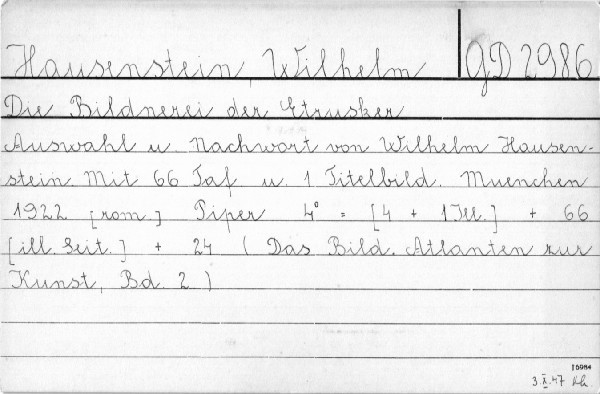 Hausenstein, Wilhelm GD 2986
Die Bildnerei der Etrusker
Auswahl u. Nachwort von Wilhelm Hausen-
stein. Mit 66 Taf. u. 1 Titelbild. Muenchen
1922 [rom.] Piper 4° = [4 + 1 Ill.] + 66
[ill. Seit.] + 24 ( Das Bild. Atlanten zur
Kunst, Bd. 2 )
15984
3.X.47